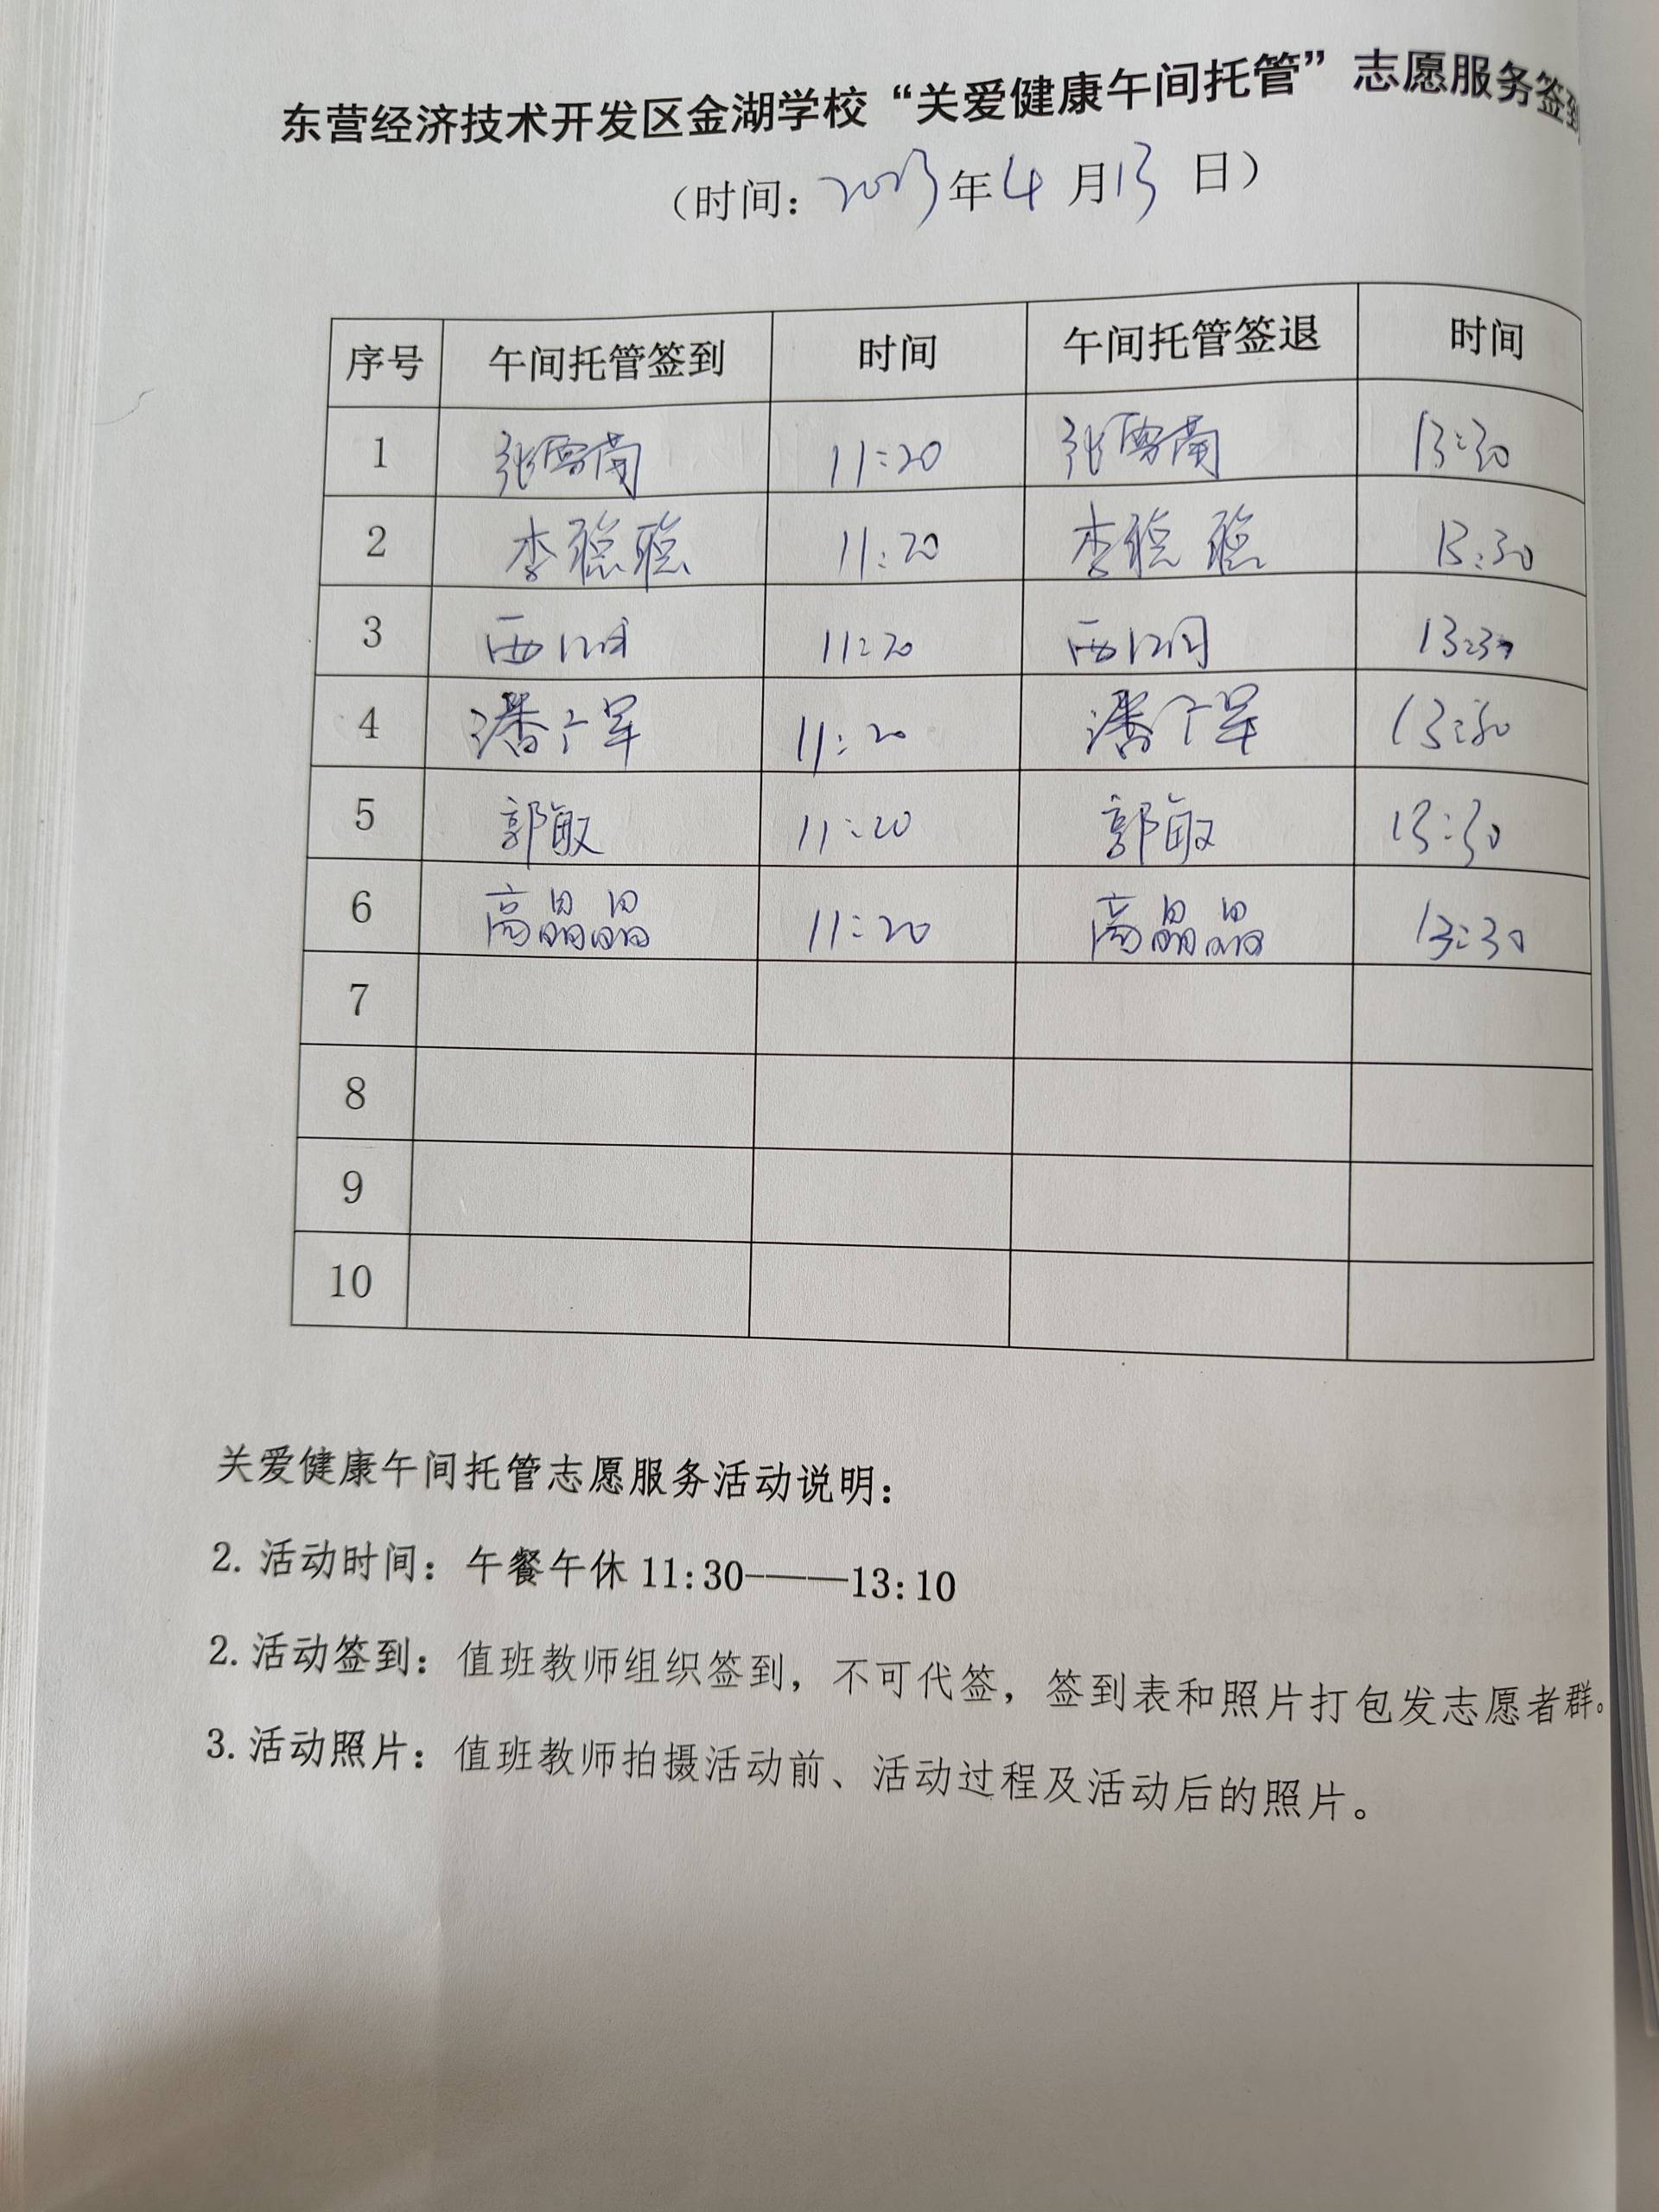 东营经济技术开发区金湖学校“关爱健康午间托管”志愿服务签到
（时间：2023年4月13日）
序号 午间托管签到 时间 午间托管签退 时间
1 张雪菊 11:20 张雪菊 13:30
2 李聪聪 11:20 李聪聪 13:30
3 11:20 13:30
4 潘 军 11:20 潘 军 13:30
5 郭敏 11:20 郭敏 13:30
6 高晶晶 11:20 高晶晶 13:30
7
8
9
10
关爱健康午间托管志愿服务活动说明：
2. 活动时间：午餐午休 11:30———13:10
2. 活动签到：值班教师组织签到，不可代签，签到表和照片打包发志愿者群。
3. 活动照片：值班教师拍摄活动前、活动过程及活动后的照片。